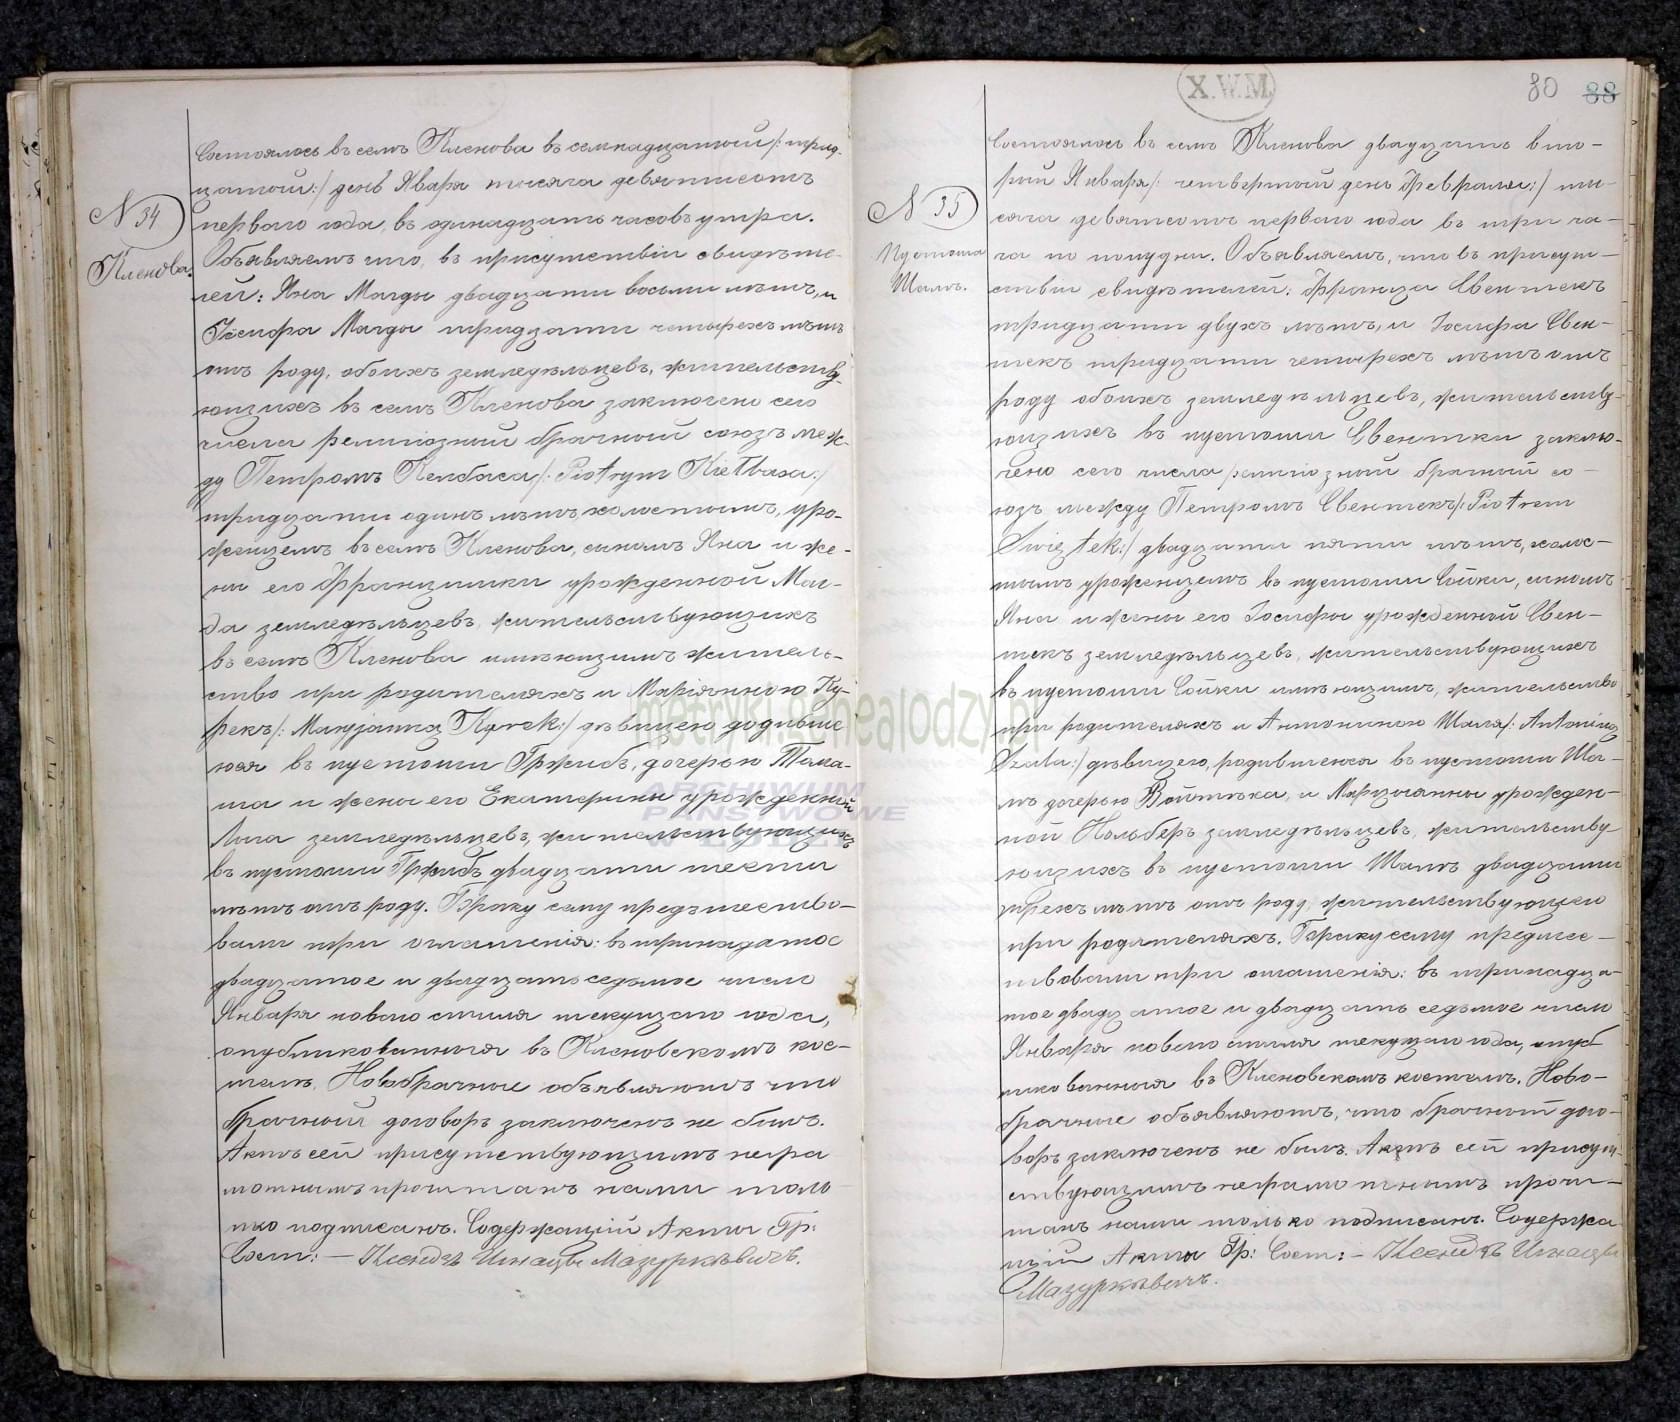 № 34
Кленова.
Состоялось въ селѣ Кленова въ семнадцатый /: трид-
цатой :/ день Января тысяча девятисотъ
перваго года, въ одинадцать часовъ утра.
Объявляемъ что, въ присутствіи свидѣте-
лей: Яна Магды двадцати восьми лѣтъ, и
Іосифа Магды тридцати четырехъ лѣтъ
отъ роду, обоихъ земледѣльцевъ, жительству-
ющихъ въ селѣ Кленова заключено сего
числа религіозный брачный союзъ меж-
ду Петромъ Келбаса /: Piotrym Kiełbasa :/
тридцати одинъ лѣтъ, холостымъ, уро-
женцемъ въ селѣ Кленова, сыномъ Яна и же-
ны его Францишки урожденной Маг-
да земледѣльцевъ, жительствующихъ
въ селѣ Кленова имѣющимъ житель-
ство при родителяхъ и Маріянною Ку-
рекъ /: Maryjanną Kurek :/ дѣвицею родивше
юся въ пустоши Гржибъ, дочерью Тома-
ша и жены его Екатерины урожденной
земледѣльцевъ, жительствующихъ
въ пустоши Гржибъ двадцати шести
лѣтъ отъ роду. Браку сему предшество-
вали три оглашенія: въ тринадцатое
двадцатое и двадцать седьмое число
Января новаго стиля текущаго года,
опубликованныя въ Кленовскомъ кос-
телѣ. Новобрачные объявляютъ что
брачный договоръ заключенъ не былъ.
Актъ сей присутствующимъ негра
мотнымъ прочитанъ нами толь
ко подписанъ. Содержащій Акты Гр:
Сост: – Ксендзъ Игнацы Мазуркѣвичъ.
X.W.M.
80 88
№ 35
Пустоша
Шалѣ.
Состоялось въ селѣ Кленова двадцать вто-
рый Января /: четвертый день Февраля :/ ты-
сяча девятсотъ перваго года въ три ча-
са по полудни. Объявляемъ, что въ присут-
ствіи свидѣтелей: Франца Свентекъ
тридцати двухъ лѣтъ, и Іосифа Свен-
текъ тридцати четырехъ лѣтъ отъ
роду обоихъ земледѣльцевъ, жительству-
ющихъ въ пустоши Свентки заклю-
чено сего числа религіозный брачный со-
юзъ между Петромъ Свентекъ /: Piotrem
Świętek :/ двадцати пяти лѣтъ, холос-
тымъ уроженцемъ въ пустоши Сойки, сыномъ
Яна и жены его Іосифы урожденной Свен-
текъ земледѣльцевъ, жительствующихъ
въ пустоши Сойки имѣющимъ, жительство
при родителяхъ и Антониною Шаля /: Antoniną
Szala :/ дѣвицею, родившеюся въ пустоши Ша-
лѣ дочерью Войтѣка, и Марцыанны урожден-
ной земледѣльцевъ, жительству
ющихъ въ пустоши Шалѣ двадцати
трехъ лѣтъ отъ роду, жительствующею
при родителяхъ. Браку сему предшес-
твовали три оглашенія: въ тринадца-
тое двадцатое и двадцать седьмое число
Января новаго стиля текущаго года, опуб
ликованныя въ Кленовскомъ костелѣ. Ново-
брачные объявляютъ, что брачный дого-
воръ заключенъ не былъ. Актъ сей присут-
ствующимъ неграмотнымъ прочи-
танъ нами только подписанъ. Содержа
щій Акты Гр: Сост: – Ксендзъ Игнацы
Мазуркѣвичъ.
metryki.genealodzy.pl
ARCHIWUM
PAŃSTWOWE
W ŁODZI